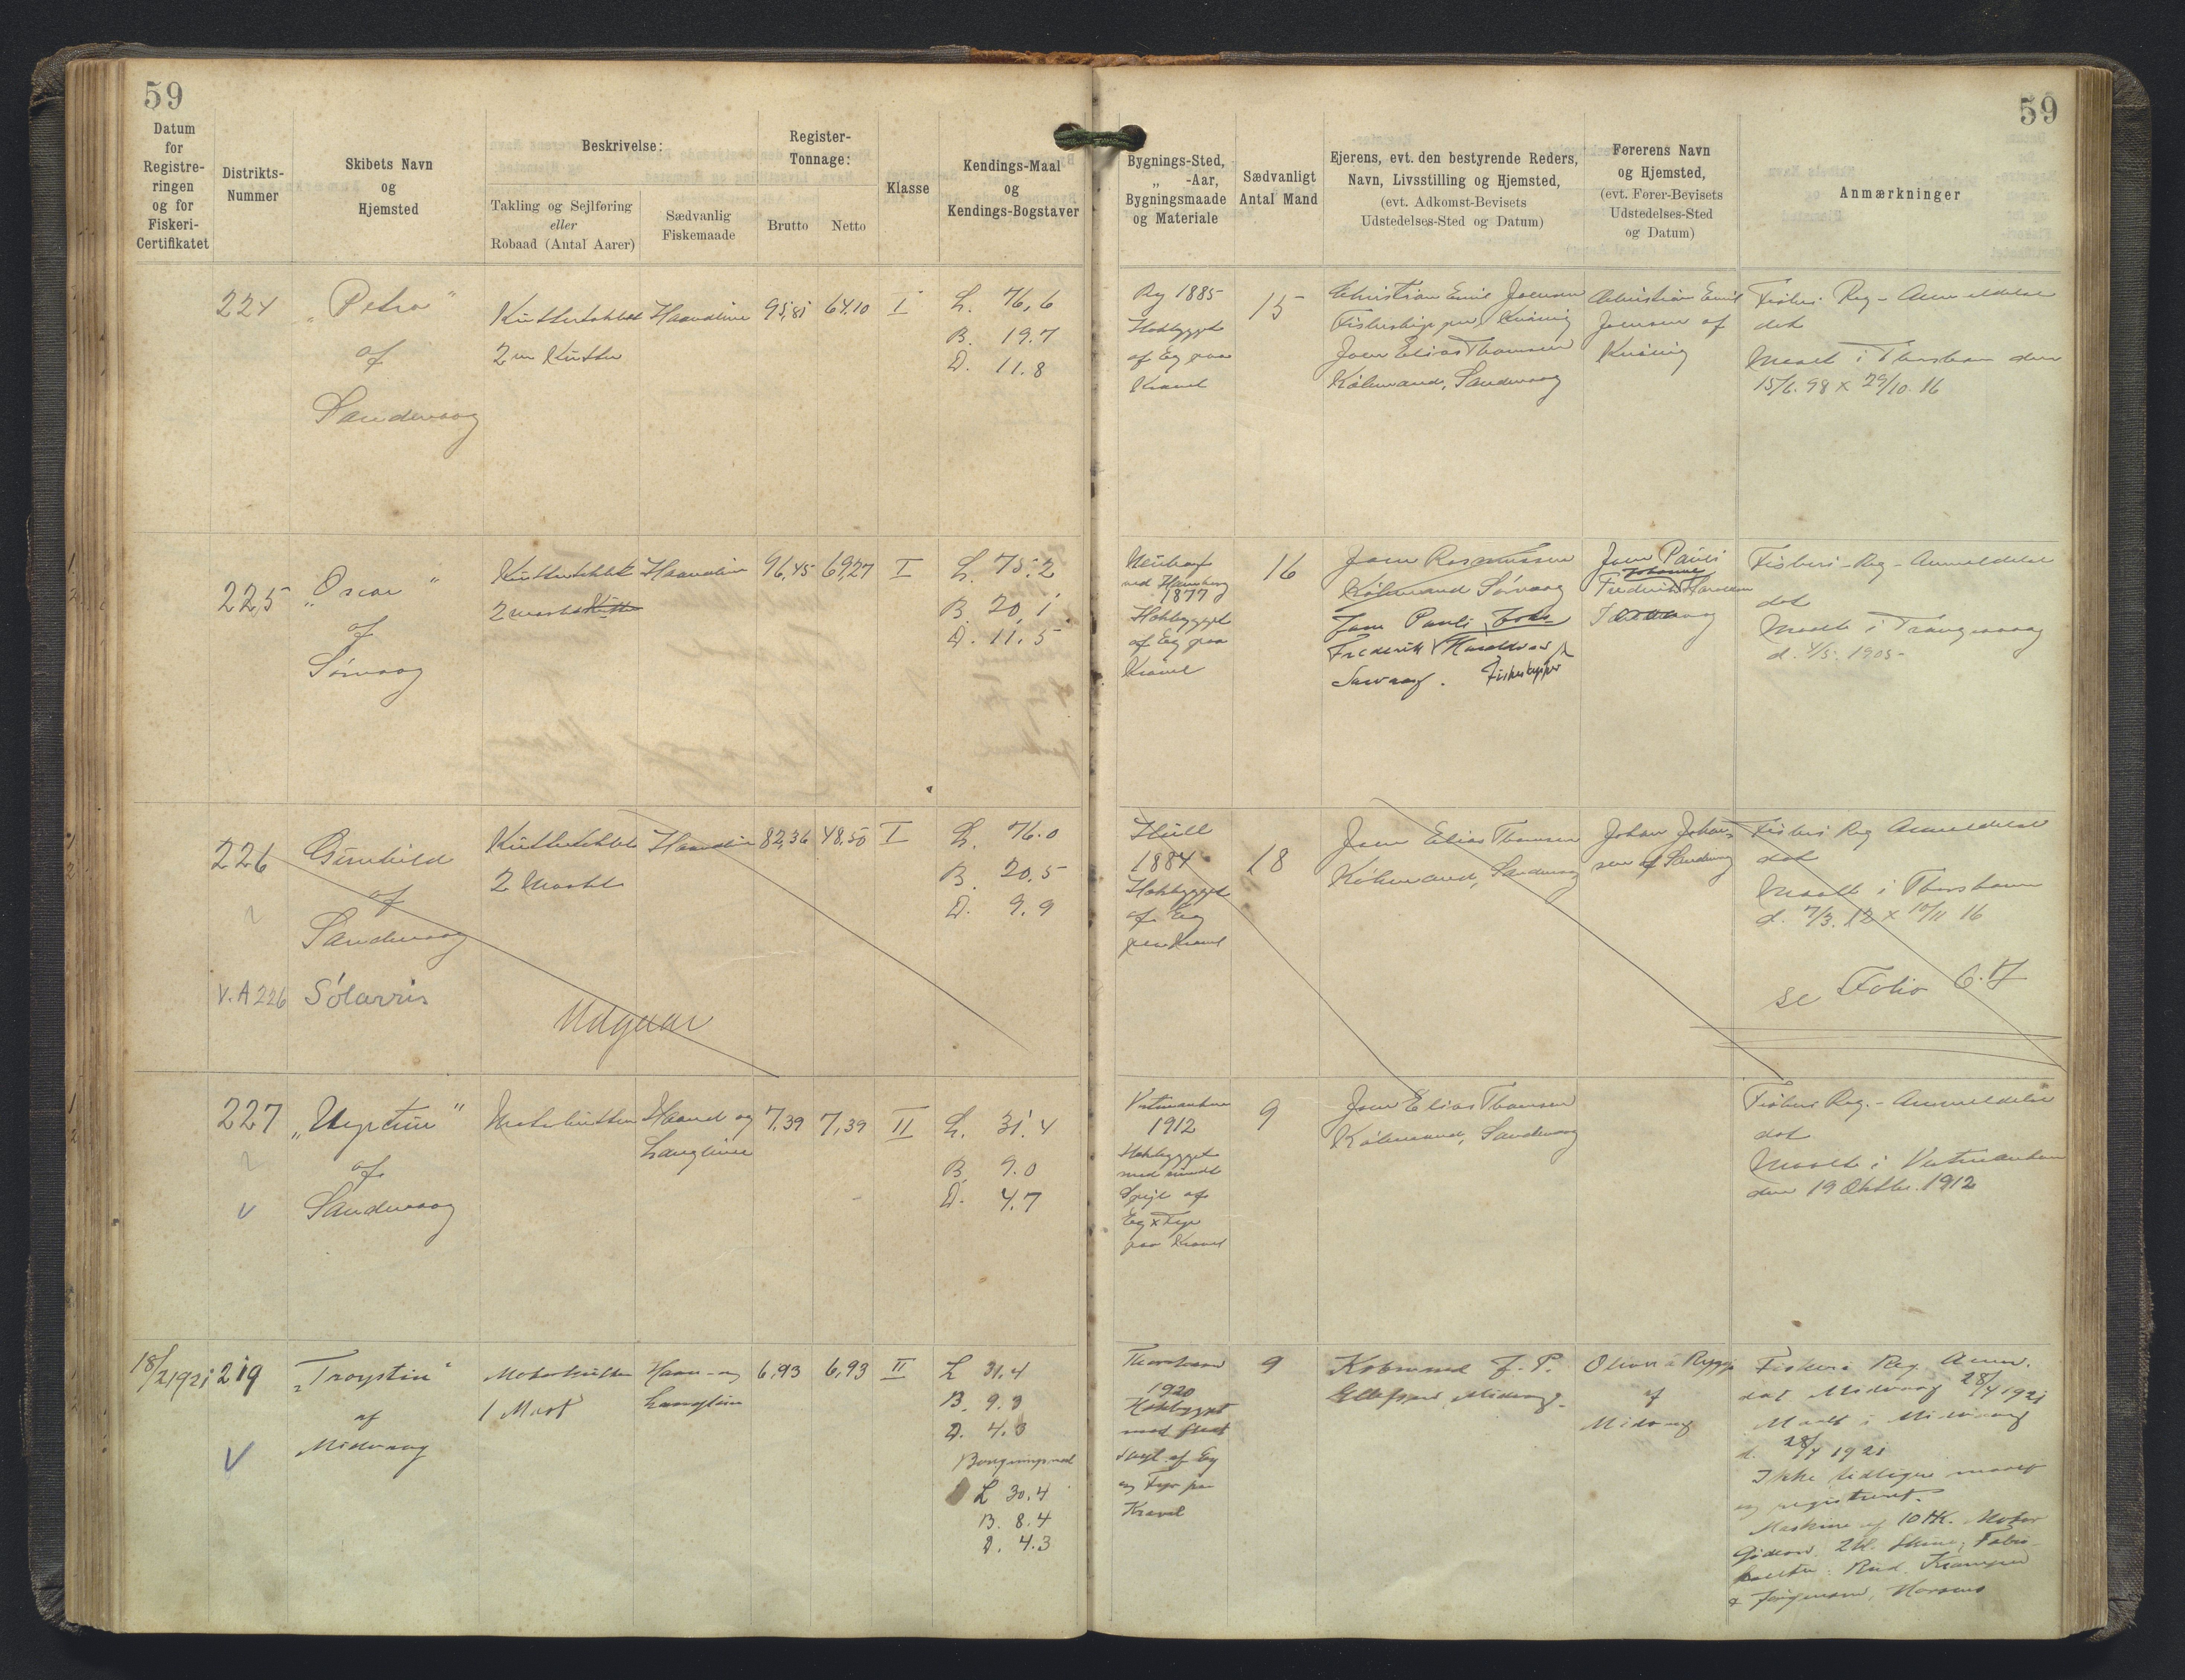 59
59
Datum
for
Registre-
ringen
og for
Fiskeri-
Certifikatet
Distrikts-
Nummer
Skibets Navn
og
Hjemsted
Beskrivelse:
Takling og Sejlføring
eller
Robaad (Antal Aarer)
Sædvanlig
Fiskemaade
Register-
Tonnage:
Brutto
Netto
Klasse
Kendings-Maal
og
Kendings-Bogstaver
Bygnings-Sted,
„ -Aar,
Bygningsmaade
og Materiale
Sædvanligt
Antal Mand
Ejerens, evt. den bestyrende Reders,
Navn, Livsstilling og Hjemsted,
(evt. Adkomst-Bevisets
Udstedelses-Sted og Datum)
Førerens Navn
og Hjemsted,
(evt. Fører-Bevisets
Udstedelses-Sted
og Datum)
Anmærkninger
224
„Petra"
af
Sandevaag
Haandline
95,81
64.10
I
L. 76,6
B. 19.7
D. 11.8
1885
Hækbygget
af Eg paa
Kravel
15
Christian Emil Joensen
Joen Elias Thomsen
Købmand, Sandevaag
Christian Emil
Joensen af
Fiskeri Reg - Anmeldelse
dat
Maalt i Thorshavn den
15/6. 98 x 29/10. 16
225
„Oscar"
af
Sørvaag
Haandline
96,45
69,27
I
L. 75.2
B. 20,1
D. 11.5
ved Hamburg
1877
Hækbygget
af Eg paa
Kravel
16
Joen Rasmussen
Købmand Sørvaag
Joen Pauli
Frederik
Sørvaag. Fiskeskipper
Joen Pauli
Frederik
Sørvaag
Fiskeri-Reg - Anmeldelse
dat
Maalt i Trangisvaag
d. 4/5. 1905
226
Gunhild
af
Sandevaag
2 Mastet
Haandline
82,36
48,50
I
L. 76.0
B. 20,5
D. 9.9
Hull
1884
Hækbygget
af Eg
paa Kravel
18
Joen Elias Thomsen
Købmand, Sandevaag
Johan Johan-
sen af Sandevaag
Fiskeri Reg Anmeldelse
dat
Maalt i Thorshavn
d. 7/3. 12 x 10/11 16
se Folio
V.A 226
Sólarris
Udgaar
227
„Neptun"
af
Sandevaag
Motorkutter
Haand og
Langline
7,39
7,39
II
L. 31.4
B. 9.0
D. 4.7
1912
Hækbygget
med rundt
Spejl af
Eg x Fyr
paa Kravel
9
Joen Elias Thomsen
Købmand, Sandevaag
Fiskeri Reg. - Anmeldelse
dat
Maalt i
den 19 Oktbr. 1912
219
„Troystin"
af
Midvaag
Motorkutter
1 Mast
Haand- og
Langline
6,93
6,93
II
L 31.4
B. 9.3
D. 4.3
L 30.4
B. 8.4
D. 4.3
Thorshavn
1920
Hækbygget
med fladt
Spejl af Eg
og Fyr på
Kravel
9
Købmand J. P.
Ellefsen, Midvaag.
Oliver á Ryggi
af
Midvaag
Fiskeri Reg. Anm.
dat Midvaag 28/4 1921
Maalt i Midvaag
d. 28/4 1921
Ikke tidligere maalt
og registreret.
Maskine af 10 HK. Motor
Gideon
& Jørgensen, Horsens